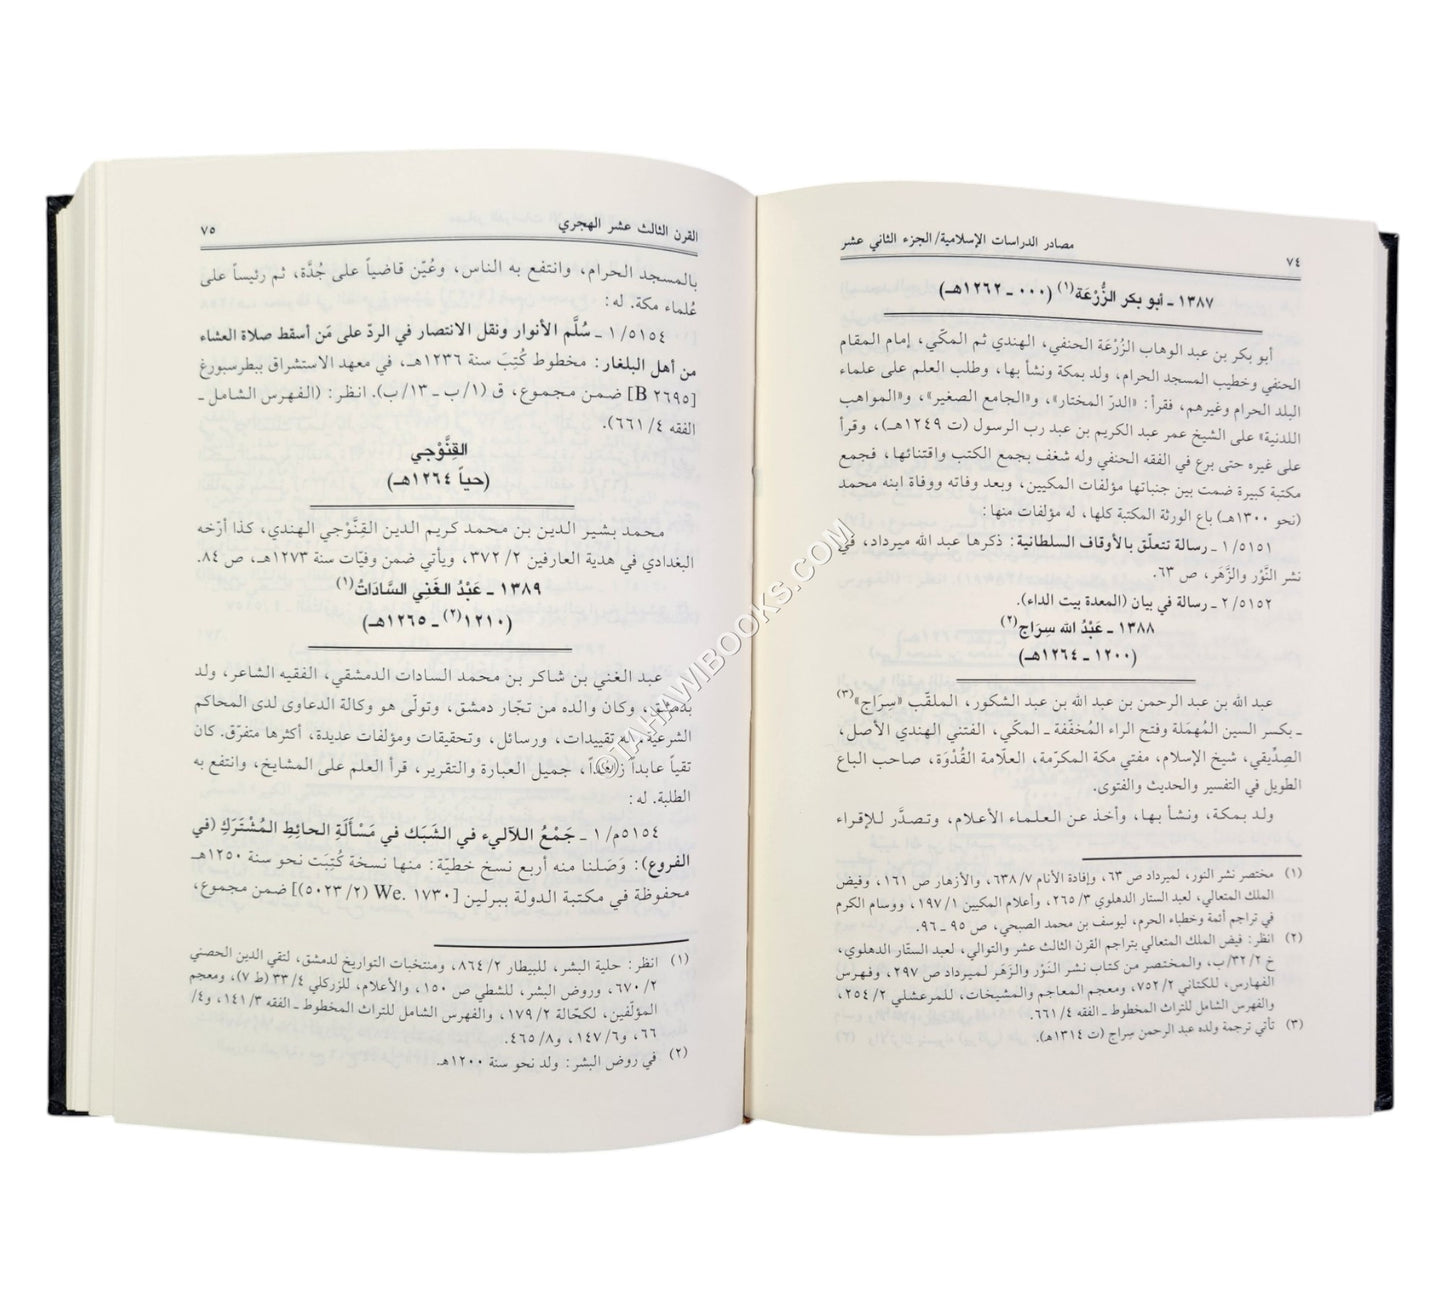 مصادر الدراسات الإسلامية/الجزء الثاني عشر
٧٤
١٣٨٧ ـ أبو بكر الزُّرْعَة(١) (٠٠٠ ـ ١٢٦٢هـ)
أبو بكر بن عبد الوهاب الزُرْعَة الحنفي، الهندي ثم المكّي، إمام المقام
الحنفي وخطيب المسجد الحرام، ولد بمكة ونشأ بها، وطلب العلم على علماء
البلد الحرام وغيرهم، فقرأ: «الدرّ المختار»، و«الجامع الصغير»، و«المواهب
اللدنية» على الشيخ عمر عبد الكريم بن عبد رب الرسول (ت ١٢٤٩هـ)، وقرأ
على غيره حتى برع في الفقه الحنفي وله شغف بجمع الكتب واقتنائها، فجمع
مكتبة كبيرة ضمت بين جنباتها مؤلفات المكيين، وبعد وفاته ووفاة ابنه محمد
(نحو ١٣٠٠هـ) باع الورثة المكتبة كلها، له مؤلفات منها:
١/٥١٥١ ـ رسالة تتعلّق بالأوقاف السلطانية: ذكرها عبد الله ميرداد، في
نشر النَّوْر والزَّهَر، ص ٦٣.
٢/٥١٥٢ ـ رسالة في بيان (المعدة بيت الداء).
١٣٨٨ ـ عَبْدُ الله سِرَاج(٢)
(١٢٠٠ ـ ١٢٦٤هـ)
عبد الله بن عبد الرحمن بن عبد الله بن عبد الشكور، الملقّب «سِرَاج»(٣)
ـ بكسر السين المُهمَلة وفتح الراء المُخفّفة ـ المكّي، الفتني الهندي الأصل،
الصِدِّيقي، شيخ الإسلام، مفتي مكة المكرّمة، العلّامة القُدْوَة، صاحب الباع
الطويل في التفسير والحديث والفتوى.
ولد بمكة، ونشأ بها، وأخذ عن العلماء الأعلام، وتصدَّر للإقراء
(١) مختصر نشر النور، لميرداد ص ٦٣، وإفادة الأنام ٧/ ٦٣٨، والأزهار ص ١٦١، وفيض
الملك المتعالي، لعبد الستار الدهلوي ٣/ ٢٦٥، وأعلام المكيين ١/ ١٩٧، ووسام الكرم
في تراجم أئمة وخطباء الحرم، ليوسف بن محمد الصبحي، ص ٩٥ ـ ٩٦.
(٢) انظر: فيض الملك المتعالي بتراجم القرن الثالث عشر والتوالي، لعبد الستّار الدهلوي،
خ ٢/ ٣٢/ب، والمختصر من كتاب نشر النَوْر والزَهَر لميرداد ص ٢٩٧، وفهرس
الفهارس، للكتاني ٢/ ٧٥٢، ومعجم المعاجم والمشيخات، للمرعشلي ٢/ ٢٥٤،
والفهرس الشامل للتراث المخطوط ـ الفقه ٤/ ٦٦١.
(٣) تأتي ترجمة ولده عبد الرحمن سِراج (ت ١٣١٤هـ).
القرن الثالث عشر الهجري
٧٥
بالمسجد الحرام، وانتفع به الناس، وعُيّن قاضياً على جُدَّة، ثم رئيساً على
عُلماء مكة. له:
١/٥١٥٤ ـ سُلَّم الأنوار ونقل الانتصار في الردّ على مَن أسقط صلاة العشاء
من أهل البلغار: مخطوط كُتِبَ سنة ١٢٣٦هـ، في معهد الاستشراق ببطرسبورغ
[B ٢٦٩٥] ضمن مجموع، ق (١/ب ـ ١٣/ب). انظر: (الفهرس الشامل ـ
الفقه ٤/ ٦٦١).
القِنَّوْجي
(حياً ١٢٦٤هـ)
محمد بشير الدين بن محمد كريم الدين القِنَّوْجي الهندي، كذا أرّخه
البغدادي في هدية العارفين ٢/ ٣٧٢، ويأتي ضمن وفيّات سنة ١٢٧٣هـ، ص ٨٤.
١٣٨٩ ـ عَبْدُ الغَني السَّادَاتُ(١)
(١٢١٠(٢) ـ ١٢٦٥هـ)
عبد الغني بن شاكر بن محمد السادات الدمشقي، الفقيه الشاعر، ولد
بدمشق، وكان والده من تجّار دمشق، وتولّى هو وكالة الدعاوى لدى المحاكم
الشرعية، له تقييدات، ورسائل، وتحقيقات ومؤلفات عديدة، أكثرها متفرّق. كان
تقياً عابداً زاهداً، جميل العبارة والتقرير، قرأ العلم على المشايخ، وانتفع به
الطلبة. له:
٥١٥٤م/١ ـ جَمْعُ اللآليء في الشَبَك في مَسْأَلَةِ الحائِطِ المُشْتَرَكِ (في
الفروع): وَصَلنا منه أربع نسخ خطيّة: منها نسخة كُتِبَت نحو سنة ١٢٥٠هـ
محفوظة في مكتبة الدولة ببرلين [We. ١٧٣٠ (٥٠٢٣/٢)] ضمن مجموع،
(١) انظر: حلية البشر، للبيطار ٢/ ٨٦٤، ومنتخبات التواريخ لدمشق، لتقي الدين الحصني
٢/ ٦٧٠، وروض البشر، للشطي ص ١٥٠، والأعلام، للزركلي ٤/ ٣٣ (ط ٧)، ومعجم
المؤلّفين، لكحّالة ٢/ ١٧٩، والفهرس الشامل للتراث المخطوط ـ الفقه ٣/ ١٤١، و٤/
٦٦، و٦/ ١٤٧، و٨/ ٤٦٥.
(٢) في روض البشر: ولد نحو سنة ١٢٠٠هـ.
©TAHAWIBOOKS.COM